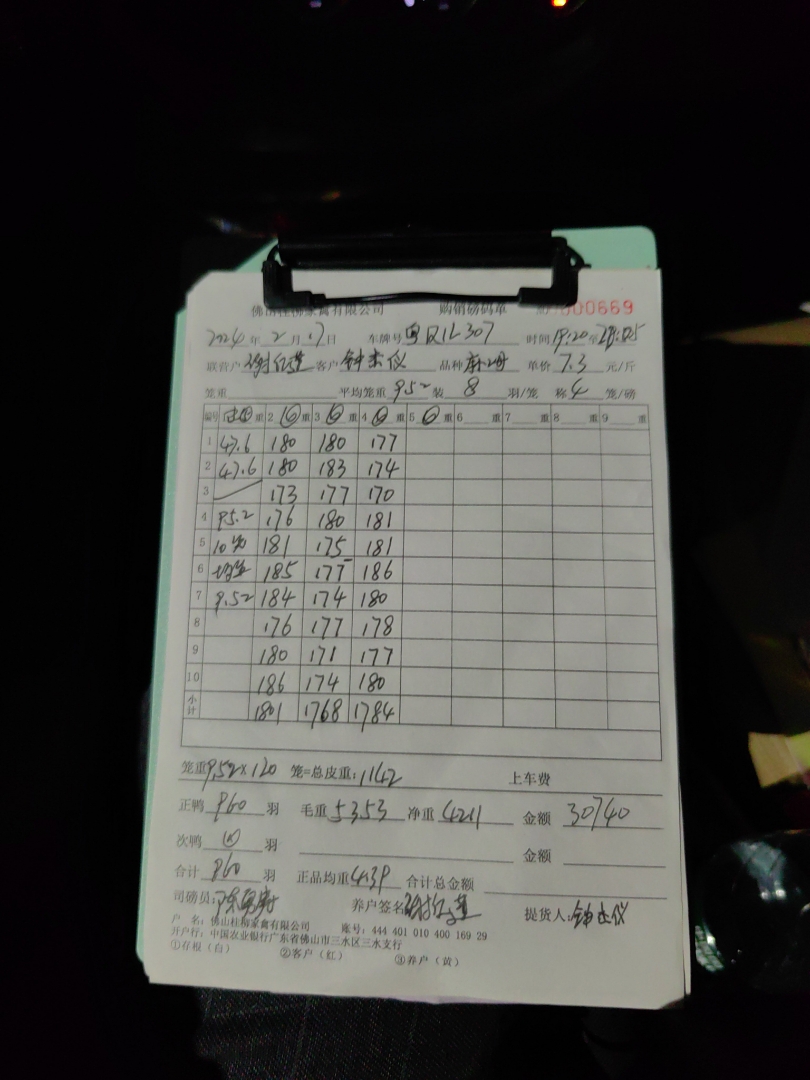 佛山桂柳家禽有限公司 购销磅码单 №000669
2024年2月17日 车牌号 时间19:20至
联营户 客户钟杰仪 品种麻2母 单价7.3元/斤
笼重 平均笼重9.52装8羽/笼 称4笼/磅
编号 重 2 ⑥重 3 ⑥重 4 ⑥重 5 ⑥重 6 重 7 重 8 重 9 重
1 47.6 180 180 177
2 47.6 180 183 174
3 173 177 170
4 95.2 176 180 181
5 181 175 181
6 185 177 186
7 9.52 184 174 180
8 176 177 178
9 180 171 177
10 186 174 180
小计 1801 1768 1784
笼重9.52×120 笼=总皮重:1142 上车费
正鸭960羽 毛重5353 净重4211 金额30740
次鸭 羽 金额
合计960羽 正品均重4.39 合计总金额
司磅员: 养户签名 提货人:钟杰仪
户 名:佛山桂柳家禽有限公司 账号:444 401 010 400 169 29
开户行:中国农业银行广东省佛山市三水区三水支行
①存根(白) ②客户(红) ③养户(黄)